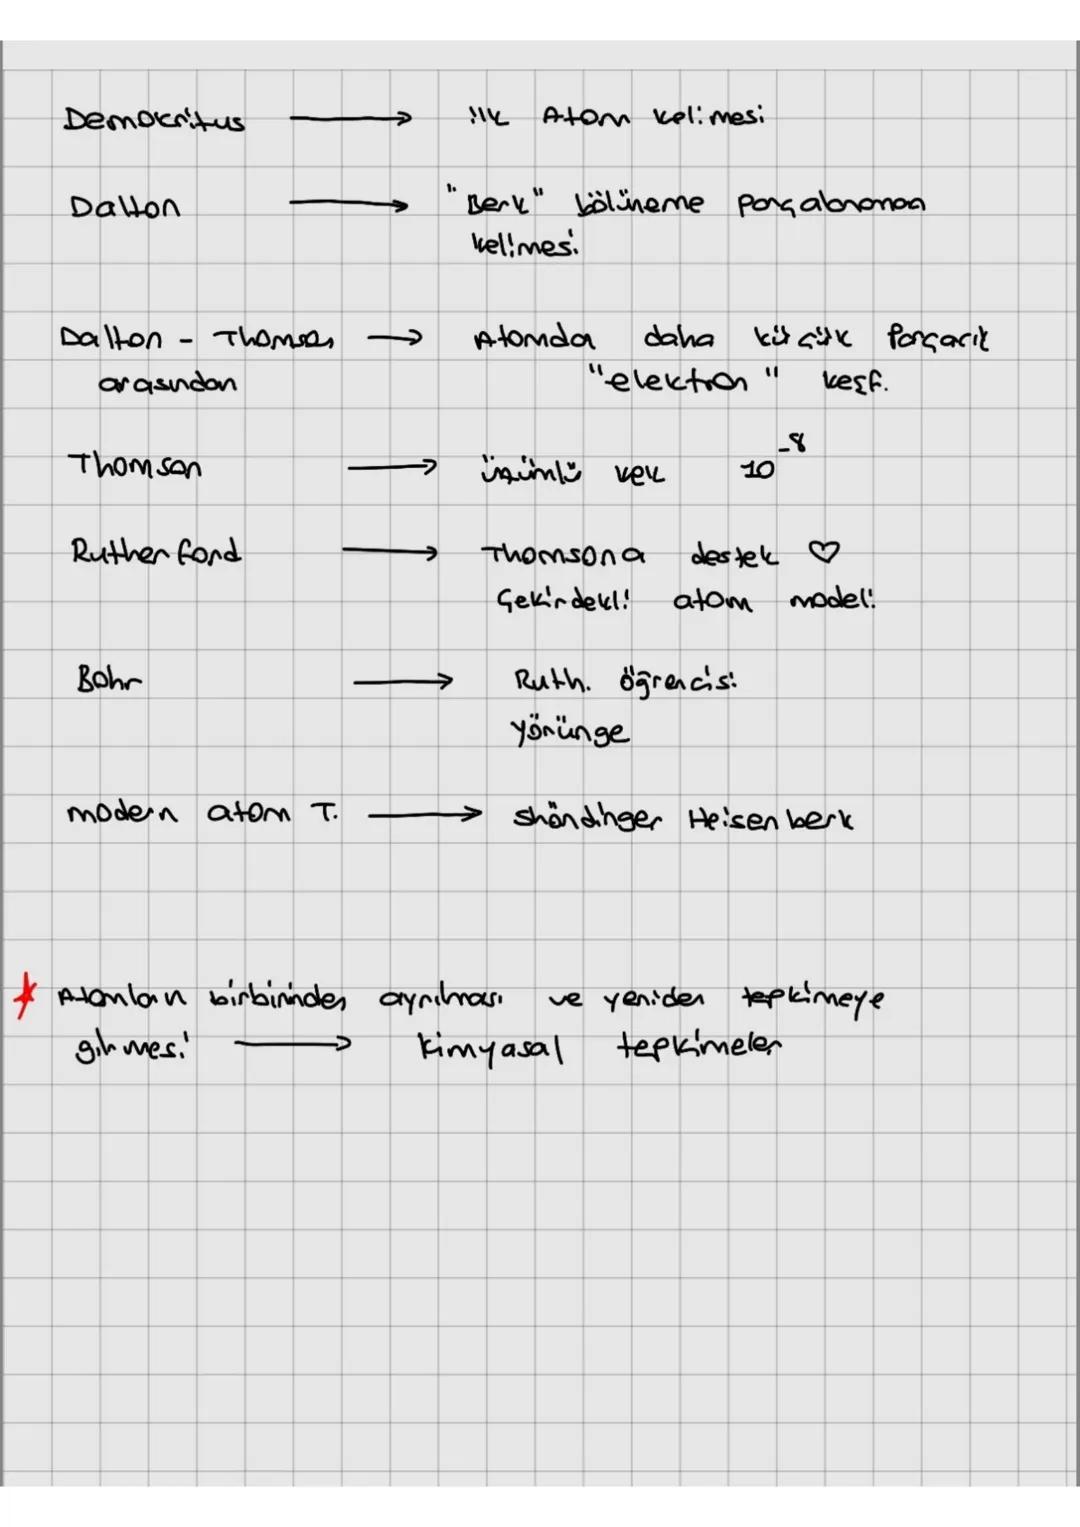 Demokritus → ilk Atom kelimesi
Dalton → "Berk" bölüneme parçalanaman
kelimesi
Dalton - Thomson → Atomda daha küçük parçacık
arasından "elektron" keşf.
Thomson → üzümlü kek 10⁻⁸
Rutherford → Thomsona destek ♡
Çekirdekli atom modeli
Bohr → Ruth. öğrencisi
yörünge
modern atom T. → Shöndinger Heisenberk
★ Atomların birbirinden ayrılması ve yeniden tepkimeye
girmesi → kimyasal tepkimeler